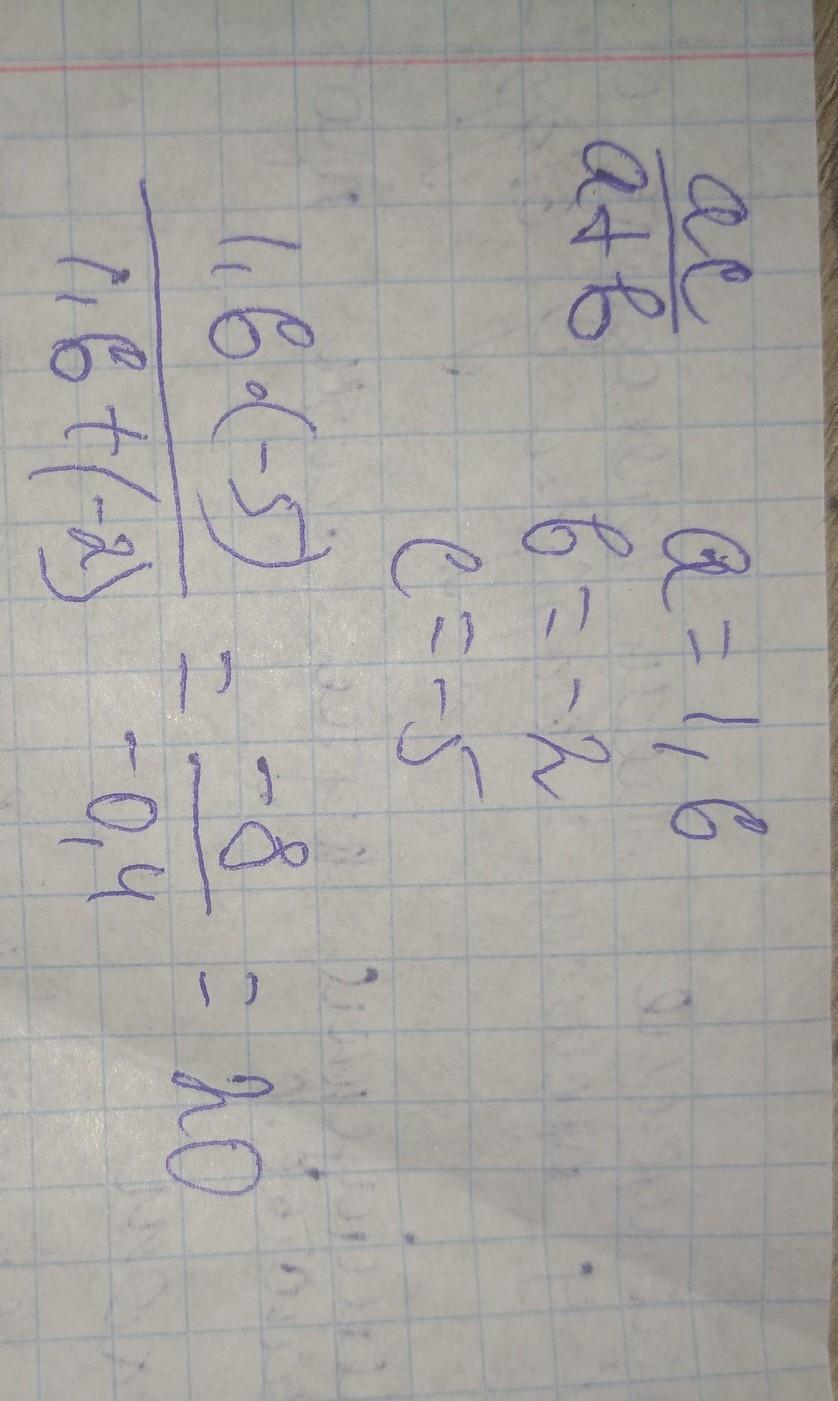 ac
a+b
a = 1,6
b = -2
c = -5
1,6·(-5)
1,6+(-2)
=
-8
-0,4
= 20